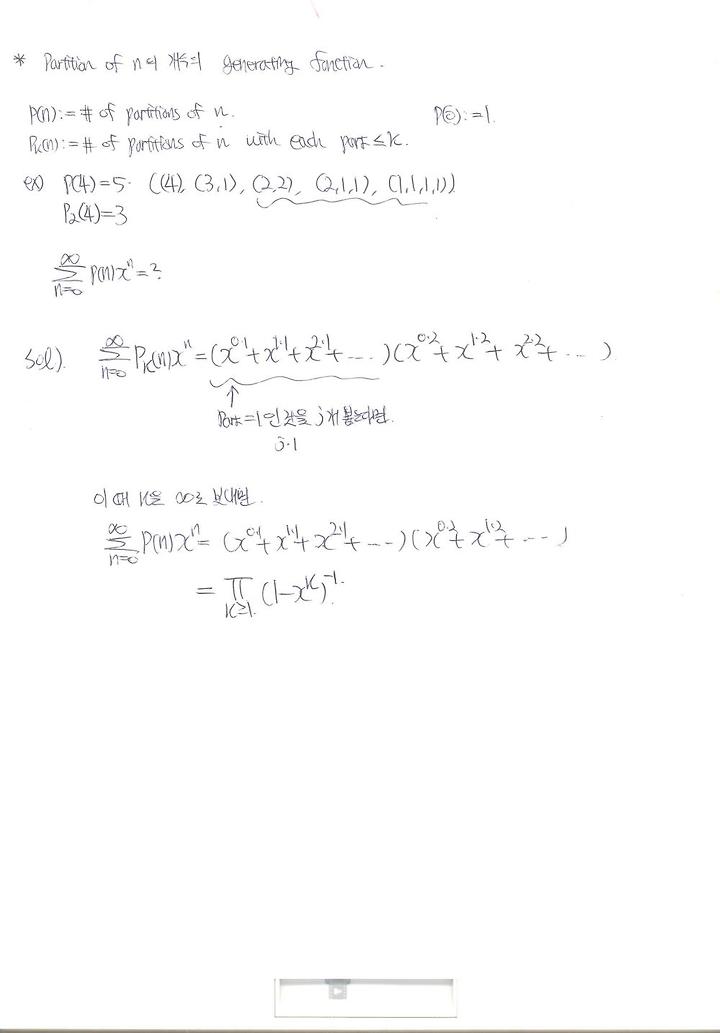 * Partition of n의 개수의 generating function.
P(n) := # of partitions of n. P(0) := 1.
Pₖ(n) := # of partitions of n with each part ≤ k.
ex) P(4)=5. ((4), (3,1), (2,2), (2,1,1), (1,1,1,1))
P₂(4)=3
∞
Σ P(n)xⁿ = ?
n=0
sol). ∞
Σ Pₖ(n)xⁿ = (x^{0·1}+x^{1·1}+x^{2·1}+ ....)(x^{0·2}+x^{1·2}+x^{2·2}+ ... )
n=0
↑
part=1인 것을 j개 뽑는다면.
j·1
이 때 k을 ∞로 보내면.
∞
Σ P(n)xⁿ = (x^{0·1}+x^{1·1}+x^{2·1}+ ....)(x^{0·2}+x^{1·2}+ .... )
n=0
= Π (1-x^k)^{-1}.
k≥1.